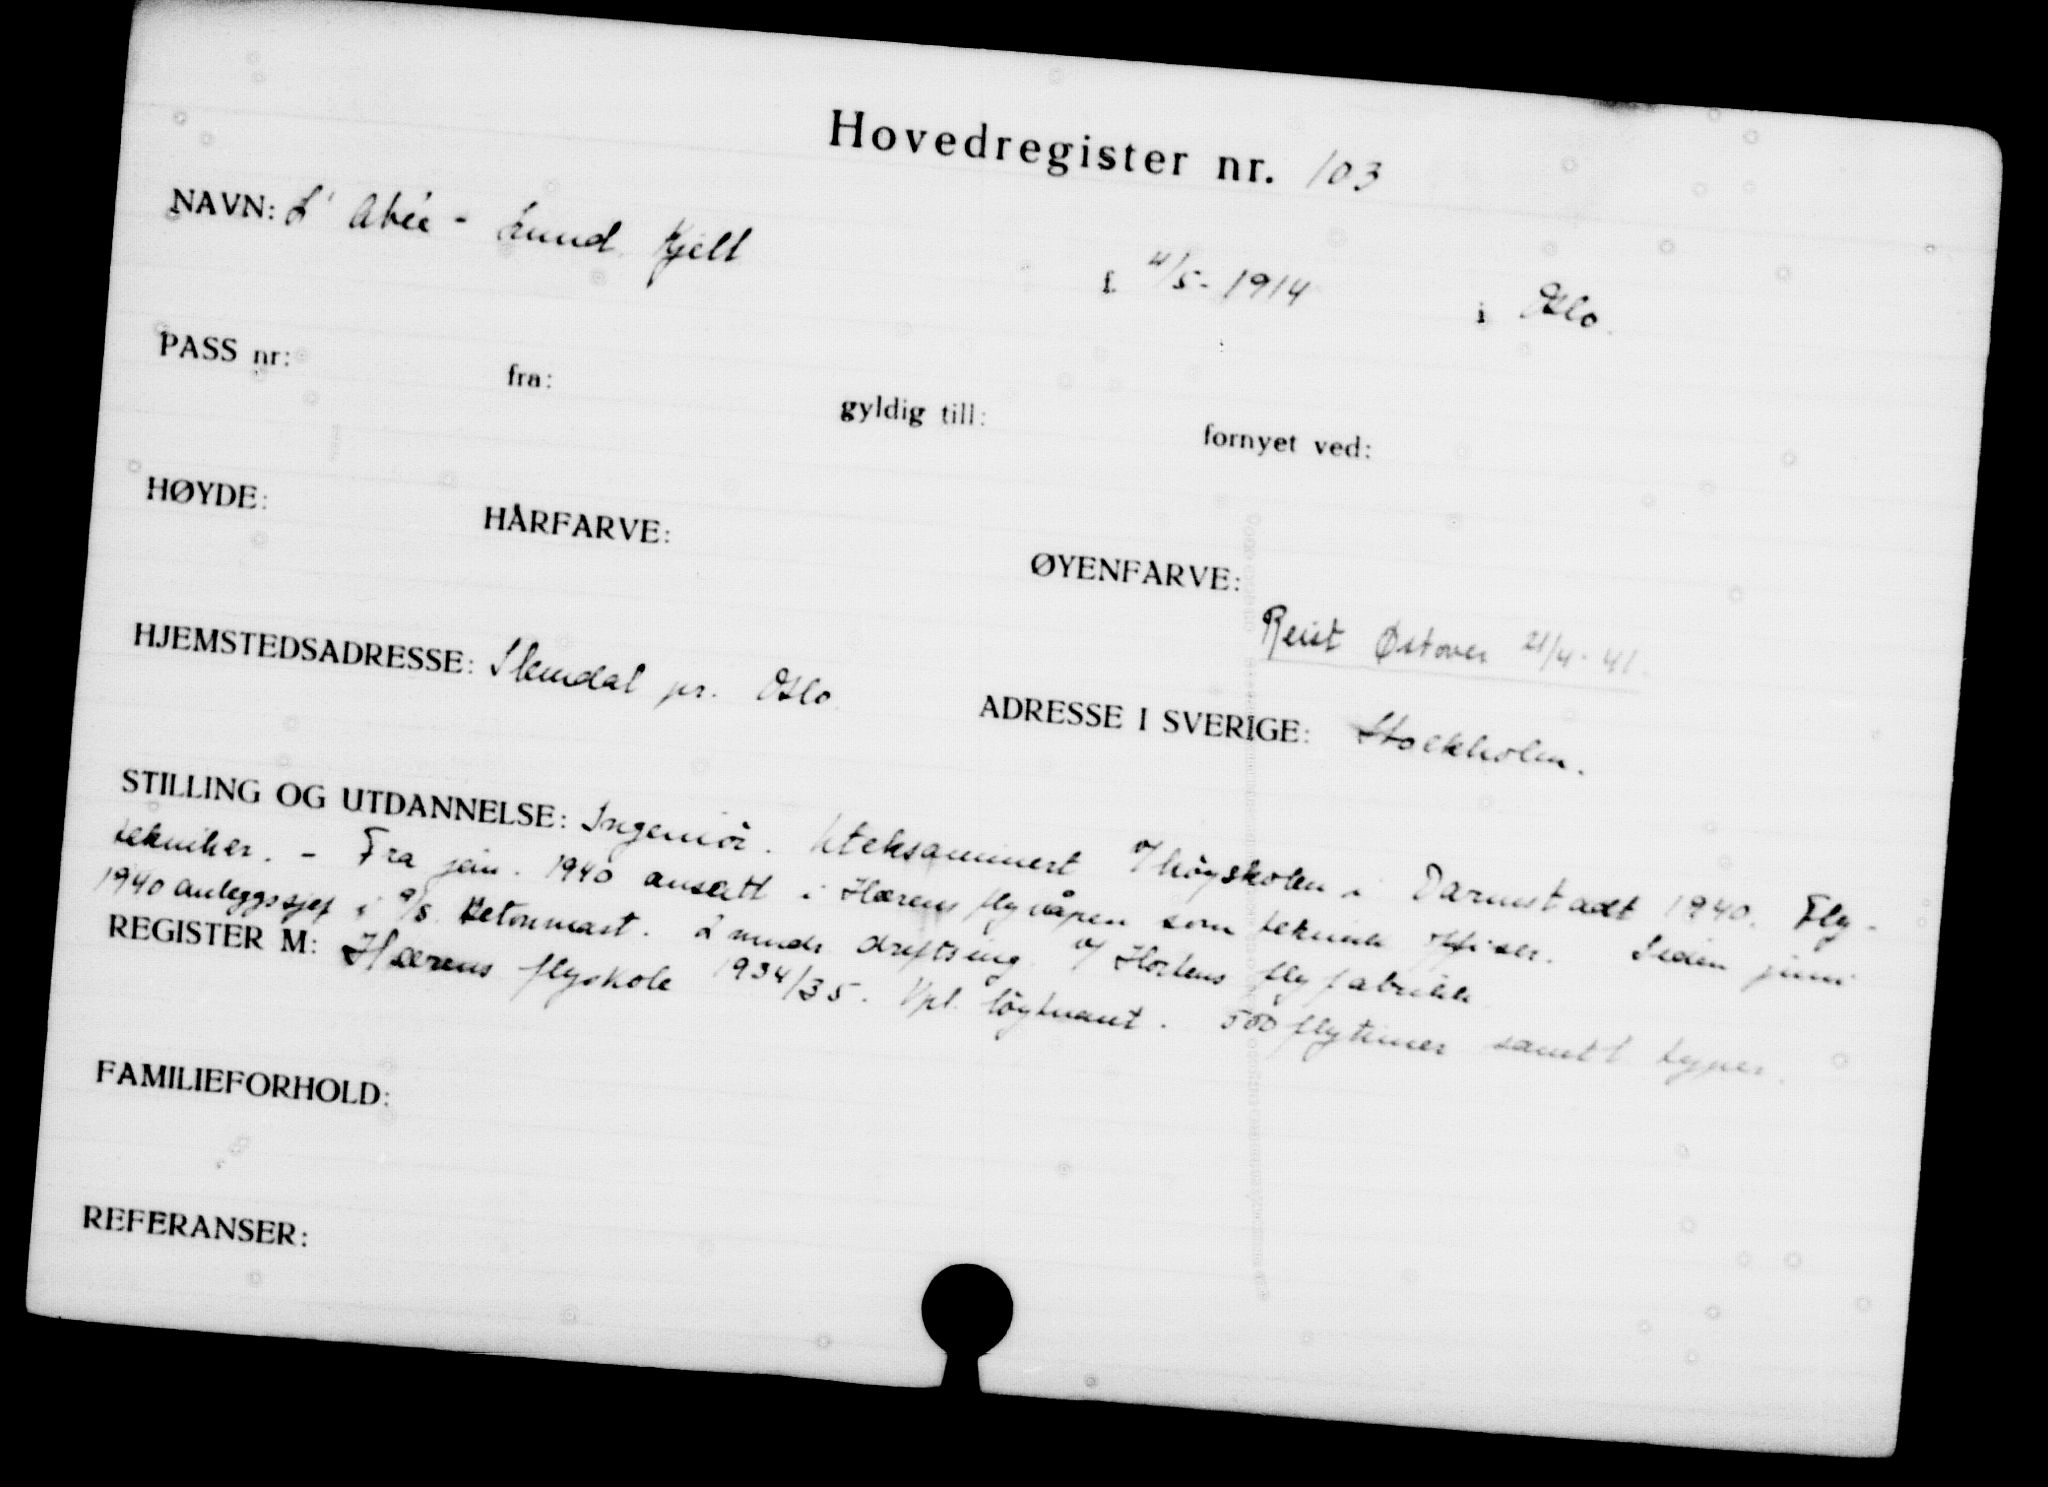 Hovedregister nr. 103
NAVN: L'Abée-Lund, Kjell f. 4/5-1914 i Oslo.
PASS nr: fra: gyldig till: fornyet ved:
HØYDE: HÅRFARVE: ØYENFARVE:
Reist Østover 21/4-41.
HJEMSTEDSADRESSE: Slemdal pr. Oslo ADRESSE I SVERIGE: Stockholm.
STILLING OG UTDANNELSE: Ingeniör. Uteksaminert v/høyskolen i Darmstadt 1940. Fly-
tekniker. - Fra jan. 1940 ansatt i Hærens flyvåpen som teknisk offiser. Siden juni
1940 anleggssjef i A/S Betonmast. 2 mndr driftsing. v/ Hortens flyfabrikk
REGISTER M: Hærens flyskole 1934/35. Vpl. løytnant. 500 flytimer samtl typer.
FAMILIEFORHOLD:
REFERANSER: